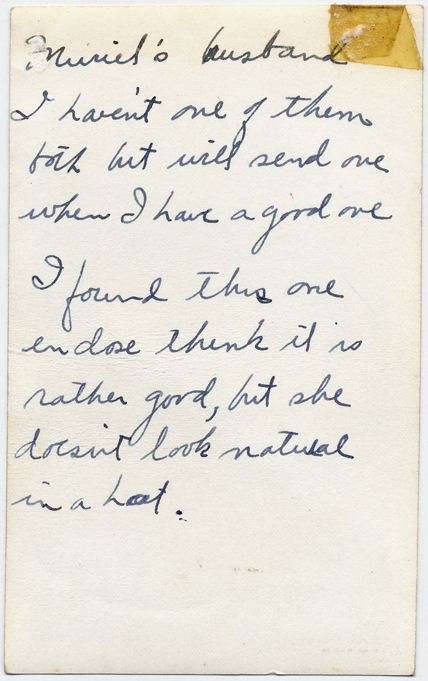 Muriel's husband
I haven't one of them
both but will send one
when I have a good one
I found this one
enclose think it is
rather good, but she
doesn't look natural
in a hat.